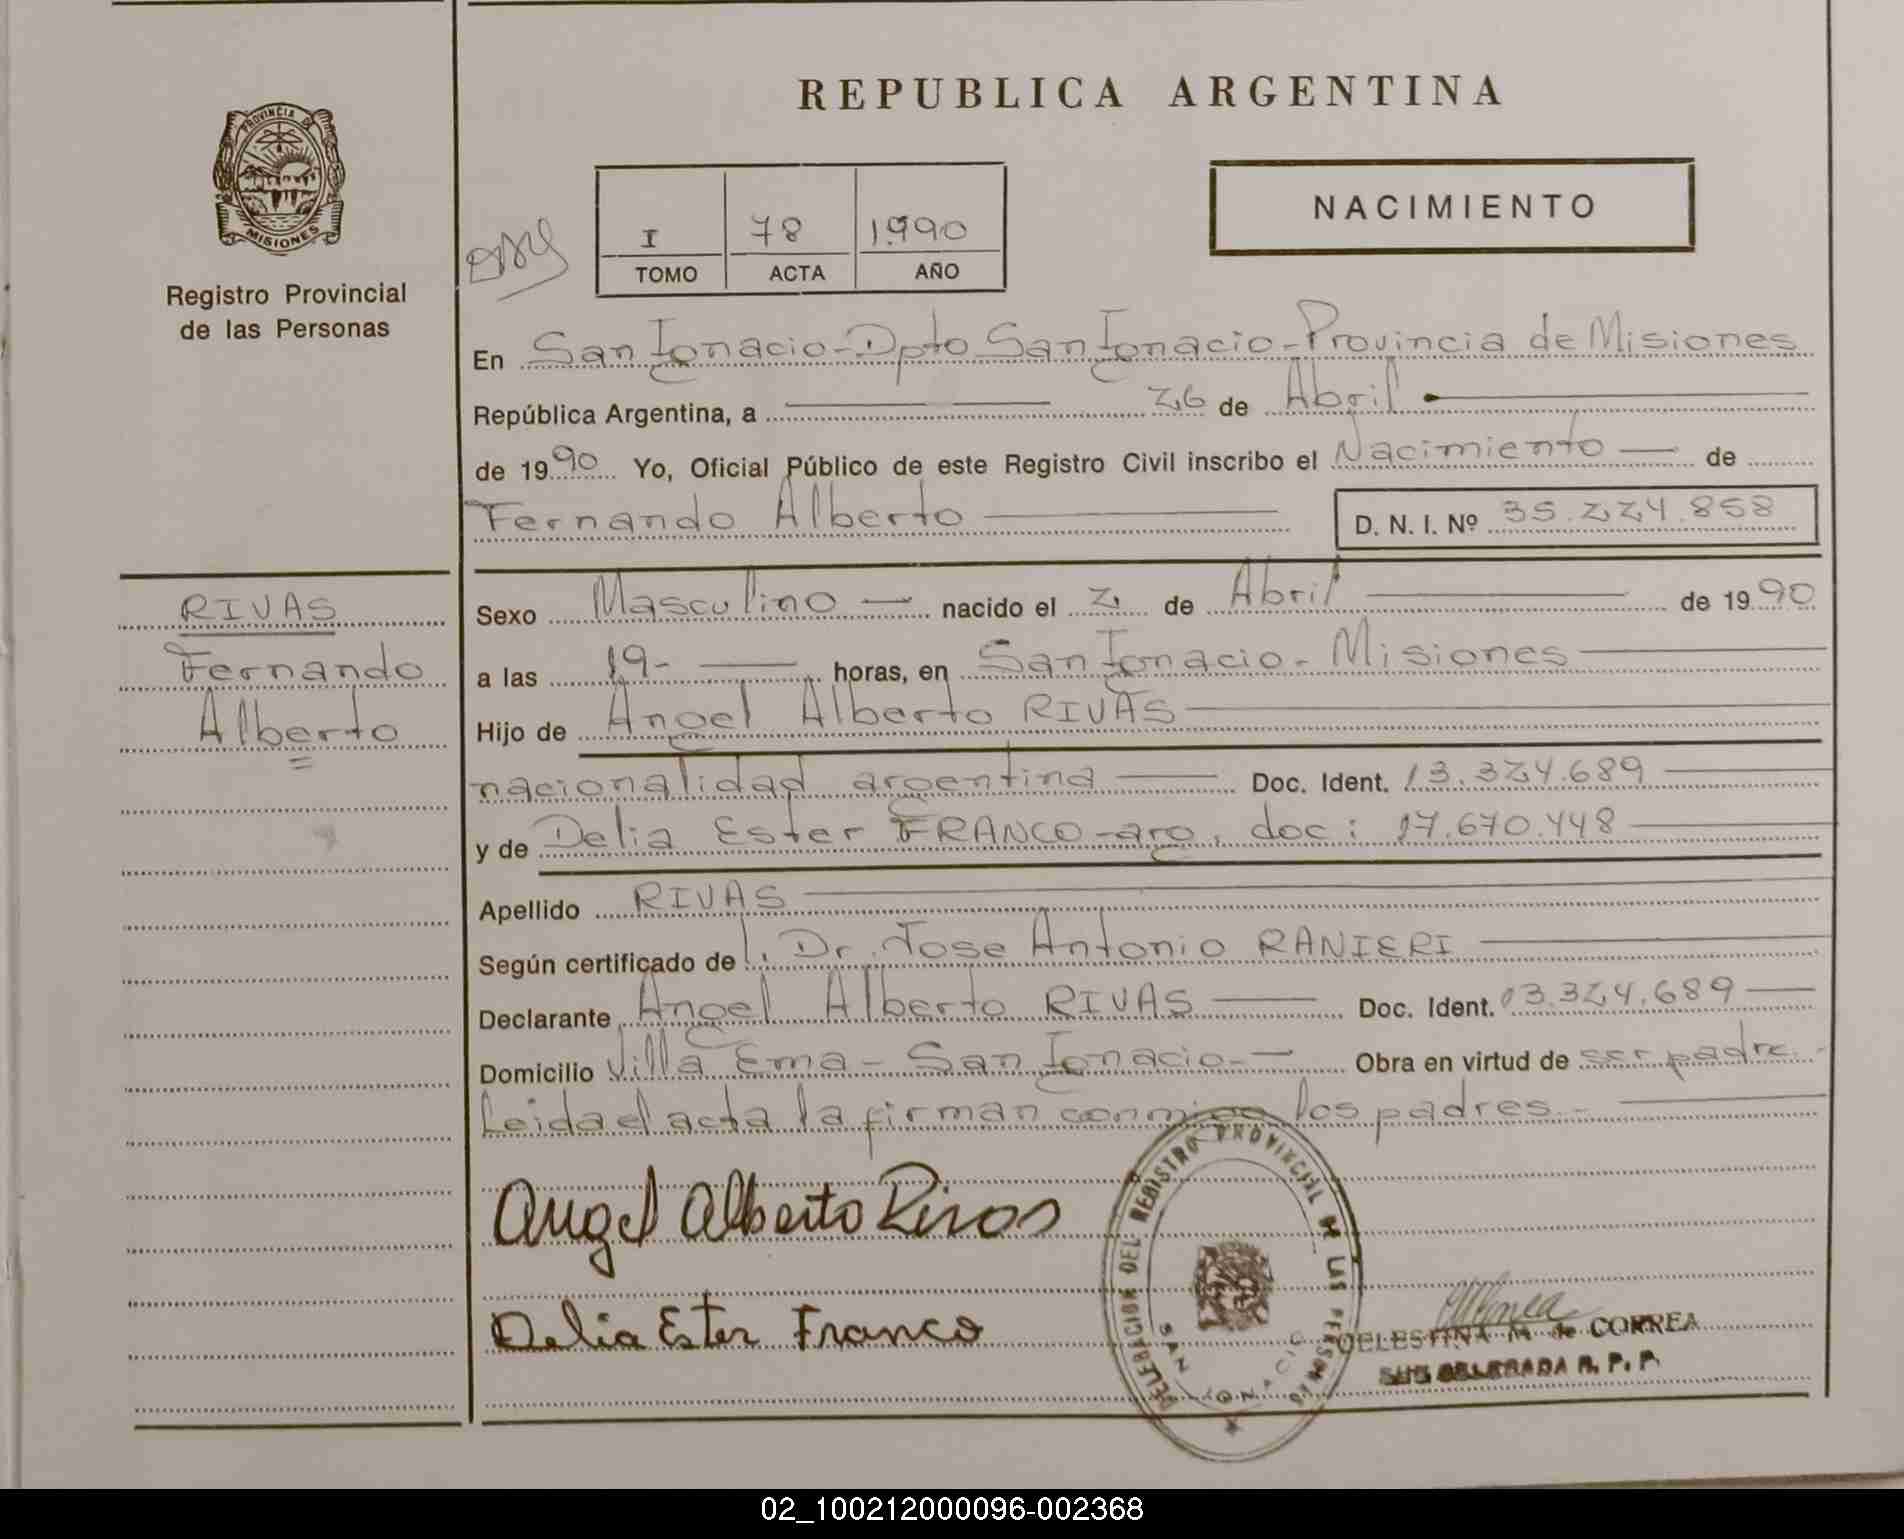 REPUBLICA ARGENTINA
PROVINCIA DE
MISIONES
Registro Provincial
de las Personas
I 78 1990
TOMO ACTA AÑO
NACIMIENTO
En San Ignacio-Dpto San Ignacio-Provincia de Misiones
República Argentina, a 26 de Abril
de 1990 Yo, Oficial Público de este Registro Civil inscribo el Nacimiento de
Fernando Alberto D. N. I. Nº 35.224.858
RIVAS
Fernando
Alberto
Sexo Masculino nacido el 2 de Abril de 1990
a las 19- horas, en San Ignacio-Misiones
Hijo de Angel Alberto RIVAS
nacionalidad argentina Doc. Ident. 13.324.689
y de Delia Ester FRANCO-arg. doc: 17.670.448
Apellido RIVAS
Según certificado de l. Dr. Jose Antonio RANIERI
Declarante Angel Alberto RIVAS Doc. Ident. 13.324.689
Domicilio Villa Ema-San Ignacio- Obra en virtud de ser padre.-
Leida el acta la firman conmigo los padres.-
Angel Alberto Rivas
Delia Ester Franco
DELEGACION DEL REGISTRO PROVINCIAL DE LAS PERSONAS
SAN IGNACIO
CELESTINA M. de CORREA
SUB DELEGADA R. P. P.
02_100212000096-002368